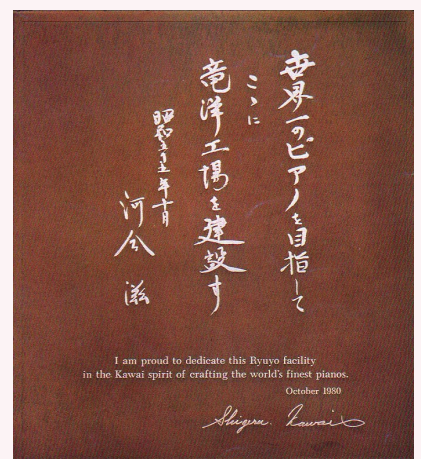 世界一のピアノを目指して
こゝに
竜洋工場を建設す
昭和五十五年十月
河合 滋
I am proud to dedicate this Ryuyo facility
in the Kawai spirit of crafting the world's finest pianos.
October 1980
Shigeru Kawai